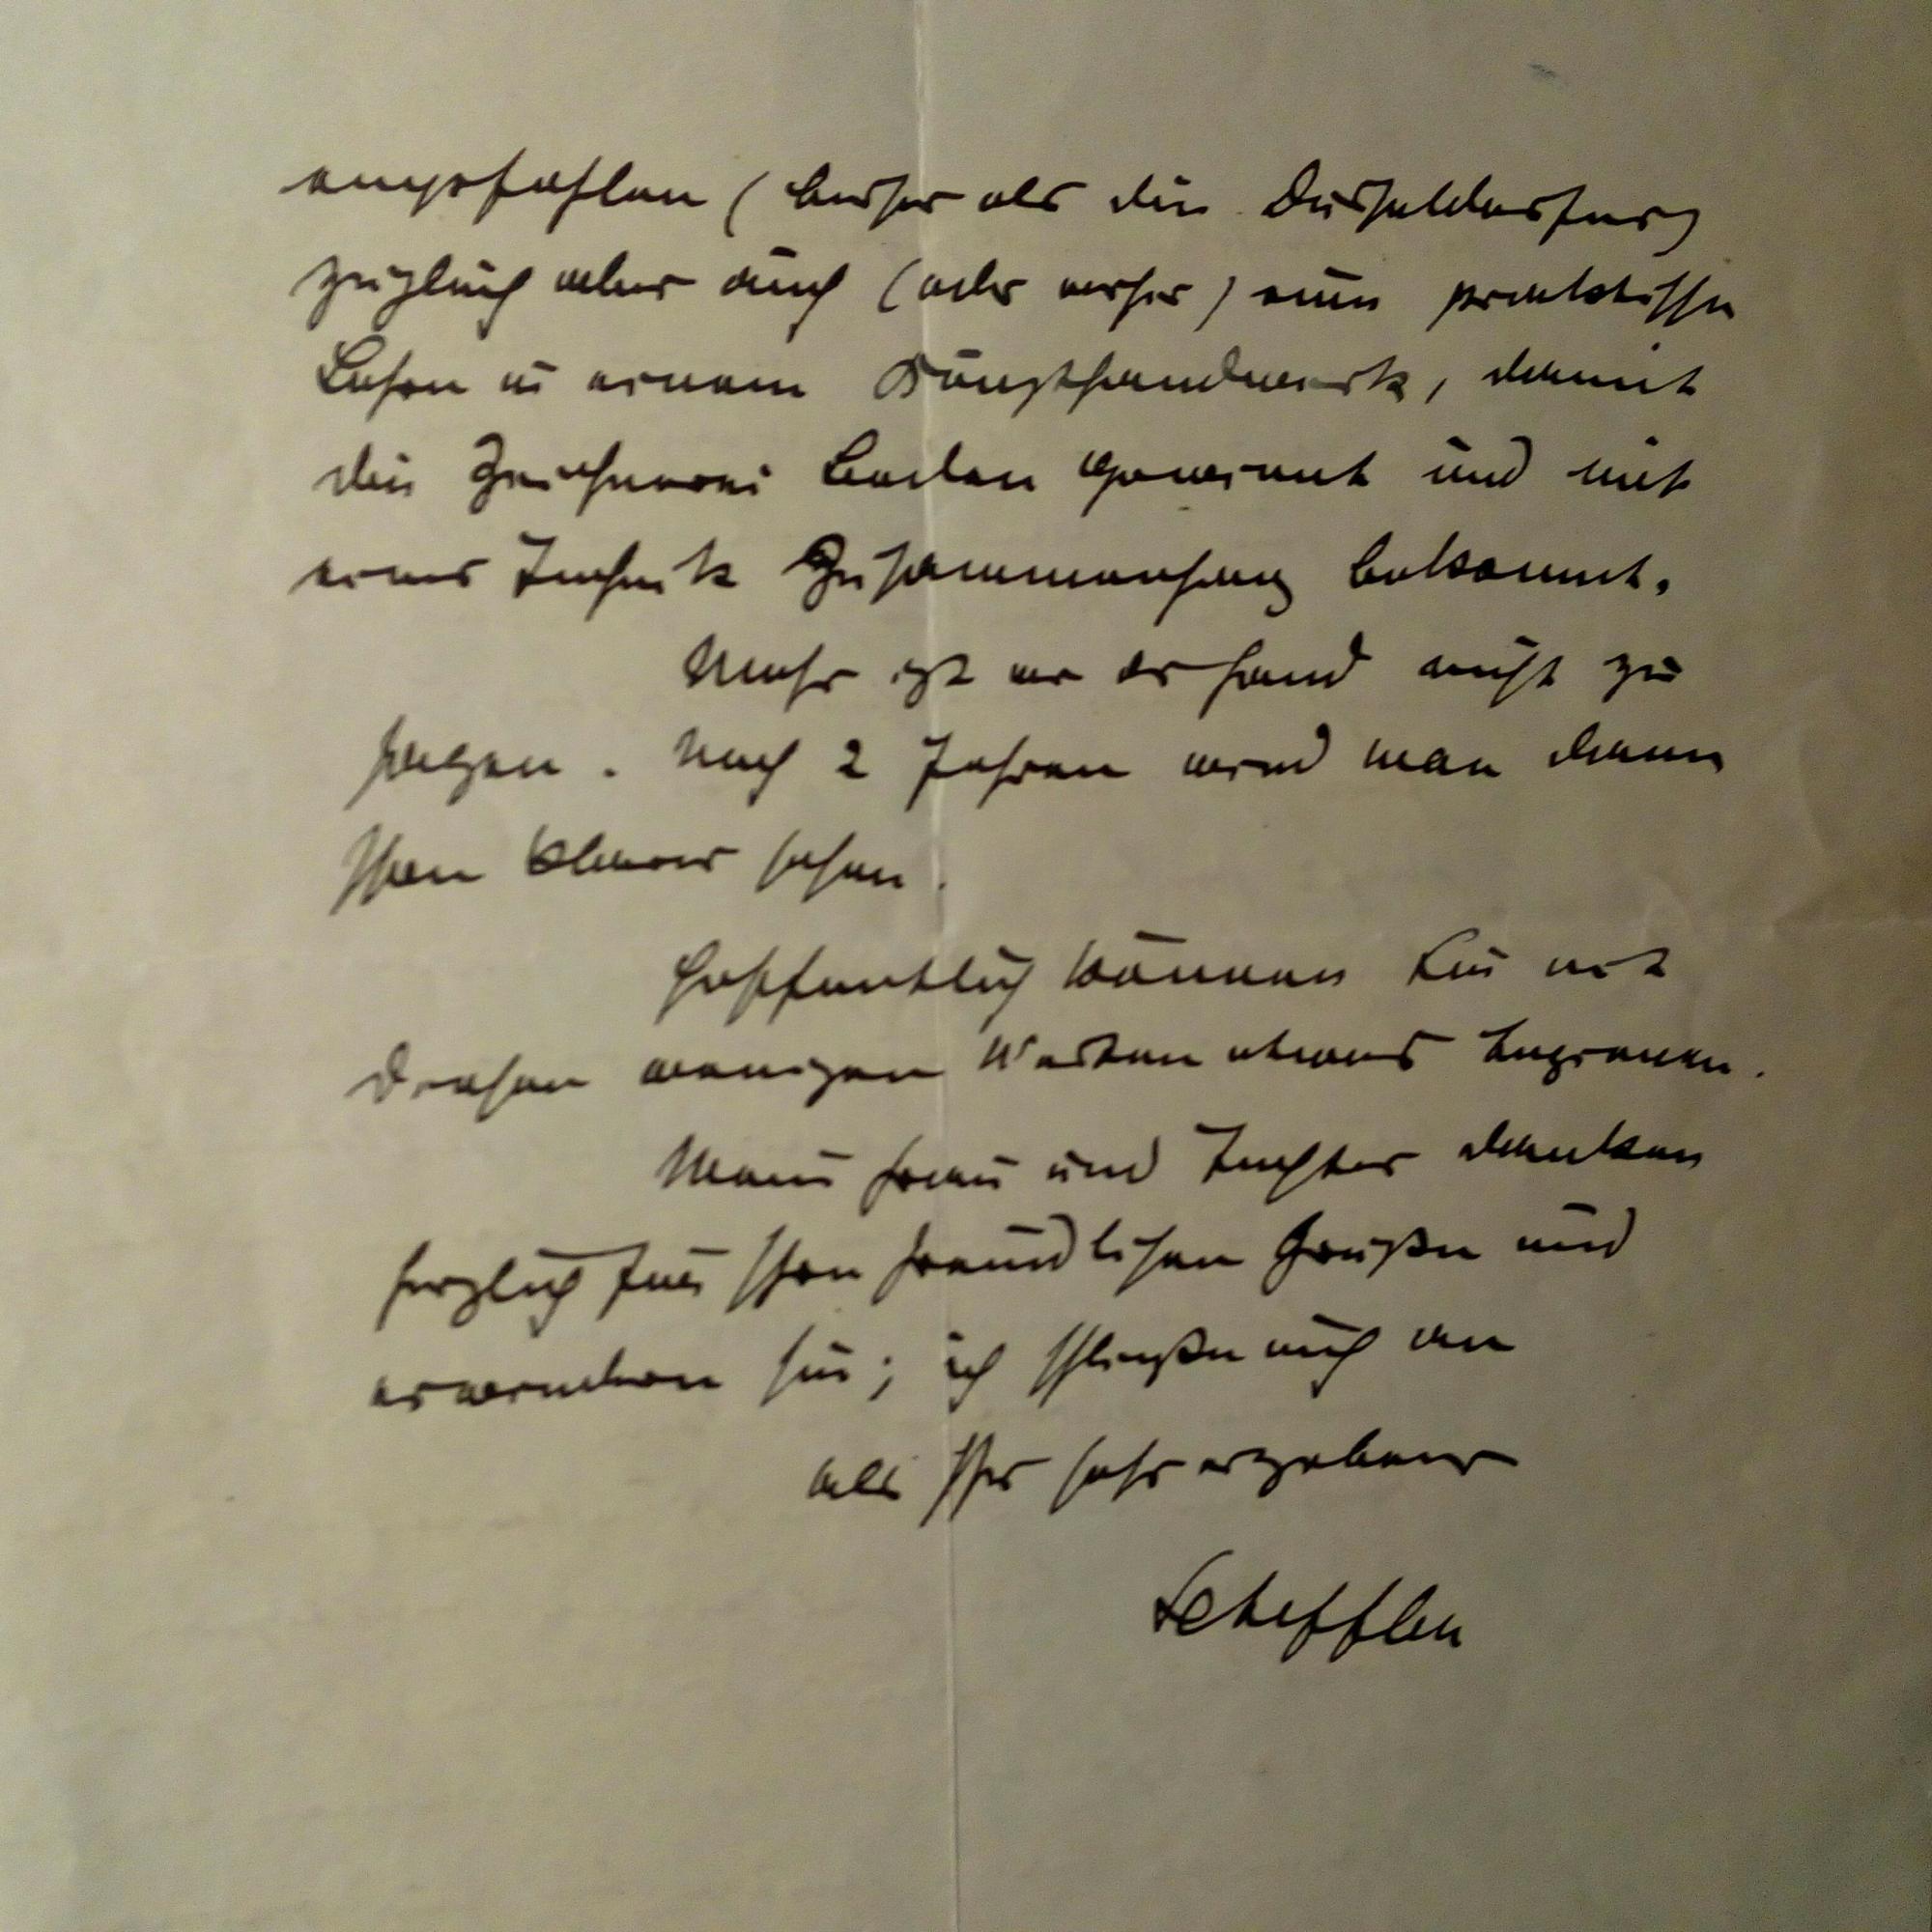 empfehlen (besser als die Düsseldorfer)
zugleich aber auch (oder vorher) eine praktische
Lehre in einem Kunsthandwerk, damit
die Zeichnerei Boden gewinnt und mit
einer Technik Zusammenhang bekommt.
Mehr ist vor der Hand nicht zu
sagen. Nach 2 Jahren wird man dann
schon klarer sehen.
Hoffentlich können Sie mit
diesen wenigen Worten etwas beginnen.
Meine Frau und Tochter danken
herzlich für Ihre freundlichen Grüße und
erwiedern sie; ich schließe mich an
als Ihr sehr ergebener
Scheffler